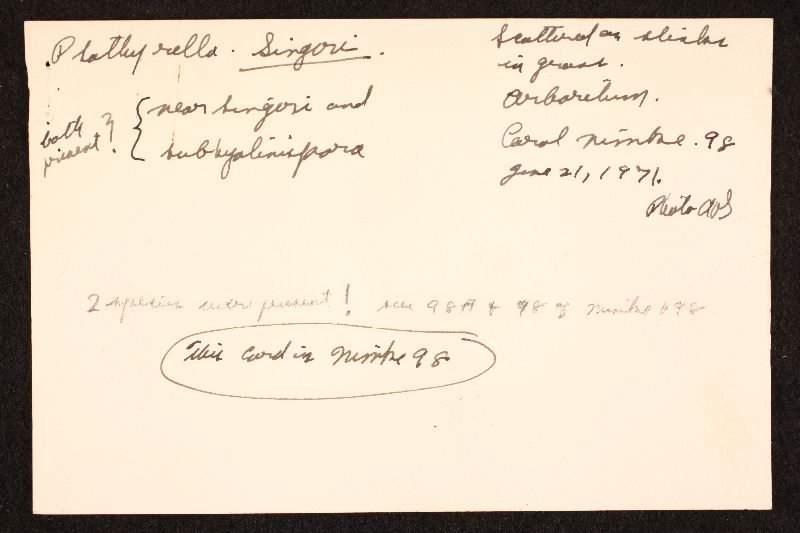 Psathyrella. Singeri.
both present? { near singeri and
subhyalinispora
Scattered on sticks
in grass.
Arboretum.
Carol Nimke. 98
June 21, 1971.
Photo AHS
2 species were present! see 98A & 98 of Nimke #98
This card in Nimke 98